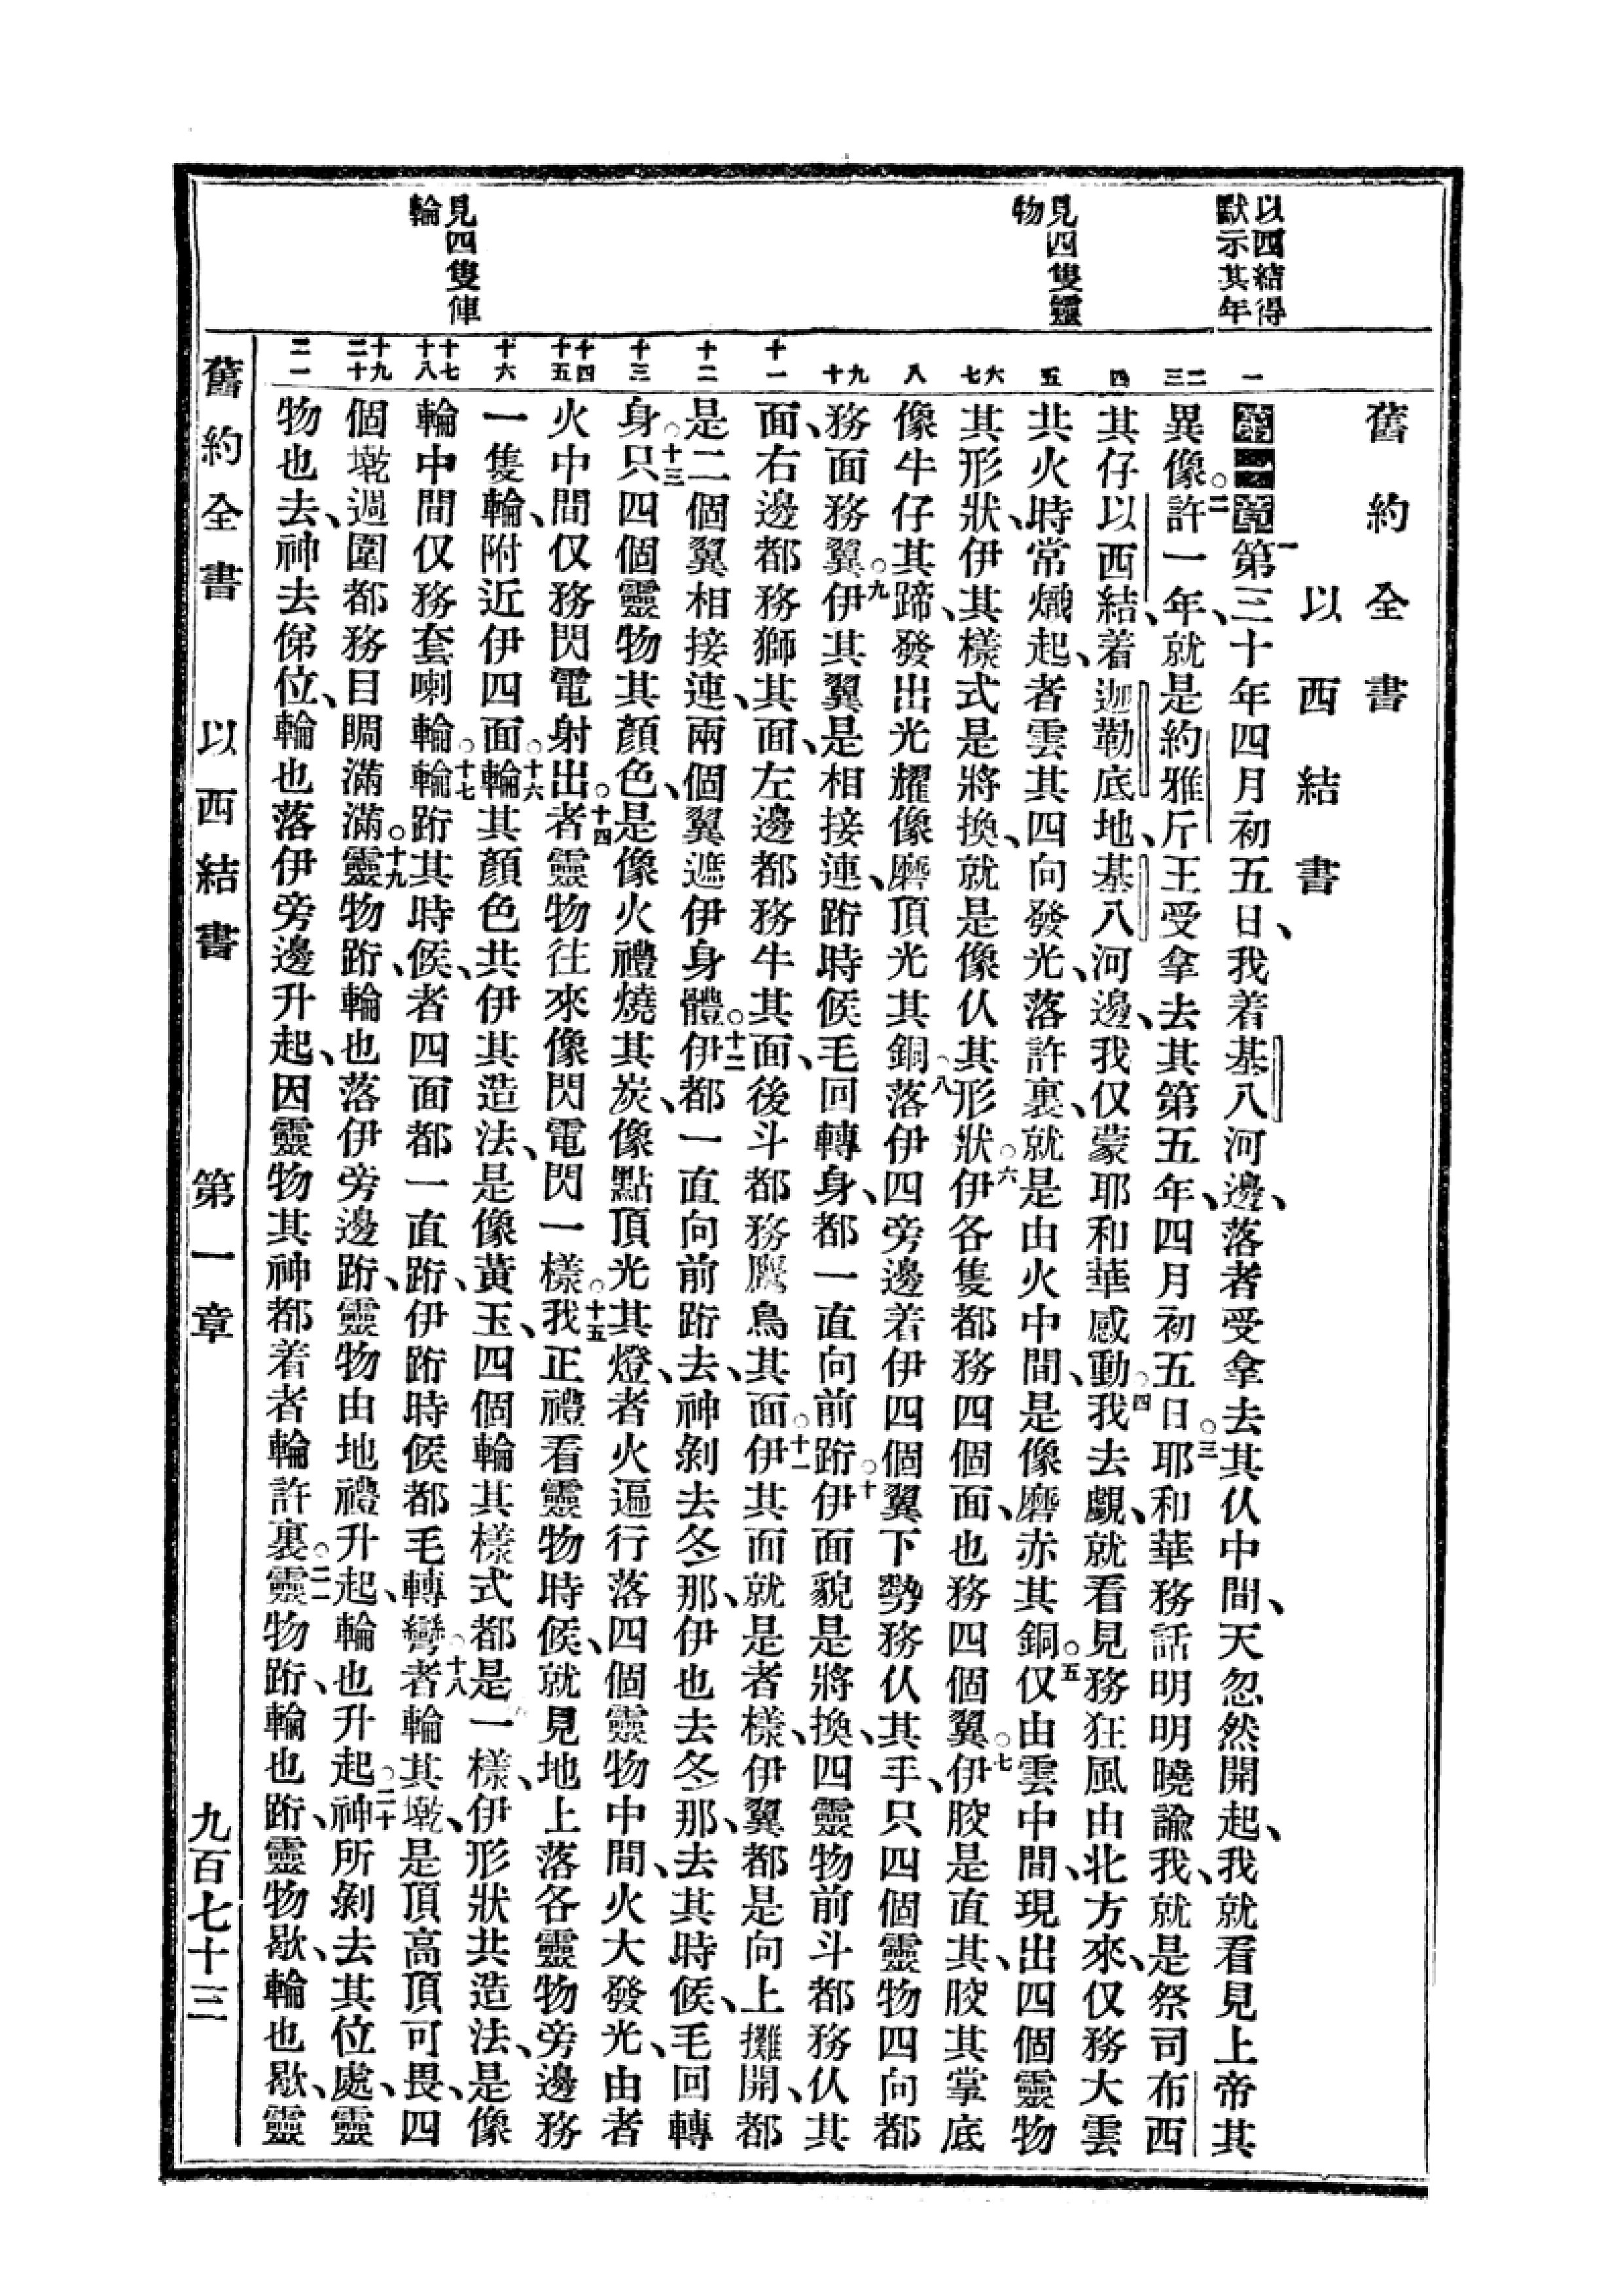 舊約全書
以西結書
以西結得
默示其年
見四隻靈
物
見四隻俥
輪
一
二三
四
五
六七
八
九十
十一
十二
十三
十四十五
十六
十七十八
十九二十
二一
第一章第三十年四月初五日、我着基八河邊、落者受拿去其仈中間、天忽然開起、我就看見上帝其
異像。二許一年、就是約雅斤王受拿去其第五年、四月初五日。三耶和華務話明明曉諭我、就是祭司布西
其仔以西結、着迦勒底地、基八河邊、我仅蒙耶和華感動。四我去覷、就看見務狂風由北方來、仅務大雲
共火時常熾起、者雲其四向發光、落許裏、就是由火中間、是像磨赤其銅。五仅由雲中間、現出四個靈物
其形狀、伊其樣式是將換、就是像仈其形狀。六伊各隻都務四個面、也務四個翼。七伊骹是直其、骹其掌底
像牛仔其蹄、發出光耀像磨頂光其銅。八落伊四旁邊着伊四個翼下勢務仈其手、只四個靈物四向都
務面務翼。九伊其翼是相接連、跲時候毛回轉身、都一直向前跲。十伊面貌是將換、四靈物前斗都務仈其
面、右邊都務獅其面、左邊都務牛其面、後斗都務鷹鳥其面。十一伊其面就是者樣、伊翼都是向上攤開、都
是二個翼相接連、兩個翼遮伊身體。十二伊都一直向前跲去、神剝去冬那、伊也去冬那、去其時候、毛回轉
身。十三只四個靈物其顏色、是像火禮燒其炭、像點頂光其燈、者火逼行落四個靈物中間、火大發光、由者
火中間仅務閃電射出。十四者靈物往來像閃電閃一樣。十五我正禮看靈物時候、就見地上落各靈物旁邊務
一隻輪、附近伊四面。十六輪其顏色共伊其造法、是像黃玉、四個輪其樣式都是一樣、伊形狀共造法、是像
輪中間仅務套喇輪。十七輪跲其時候、者四面都一直跲、伊跲時候都毛轉彎。十八者輪其墘、是頂高頂可畏、四
個墘週圍都務目睭滿滿。十九靈物跲、輪也落伊旁邊跲、靈物由地禮升起、輪也升起。二十神所剝去其位處、靈
物也去、神去俤位、輪也落伊旁邊升起、因靈物其神都着者輪許裏。二一靈物跲、輪也跲、靈物歇、輪也歇、靈
舊約全書　以西結書　第一章　九百七十三